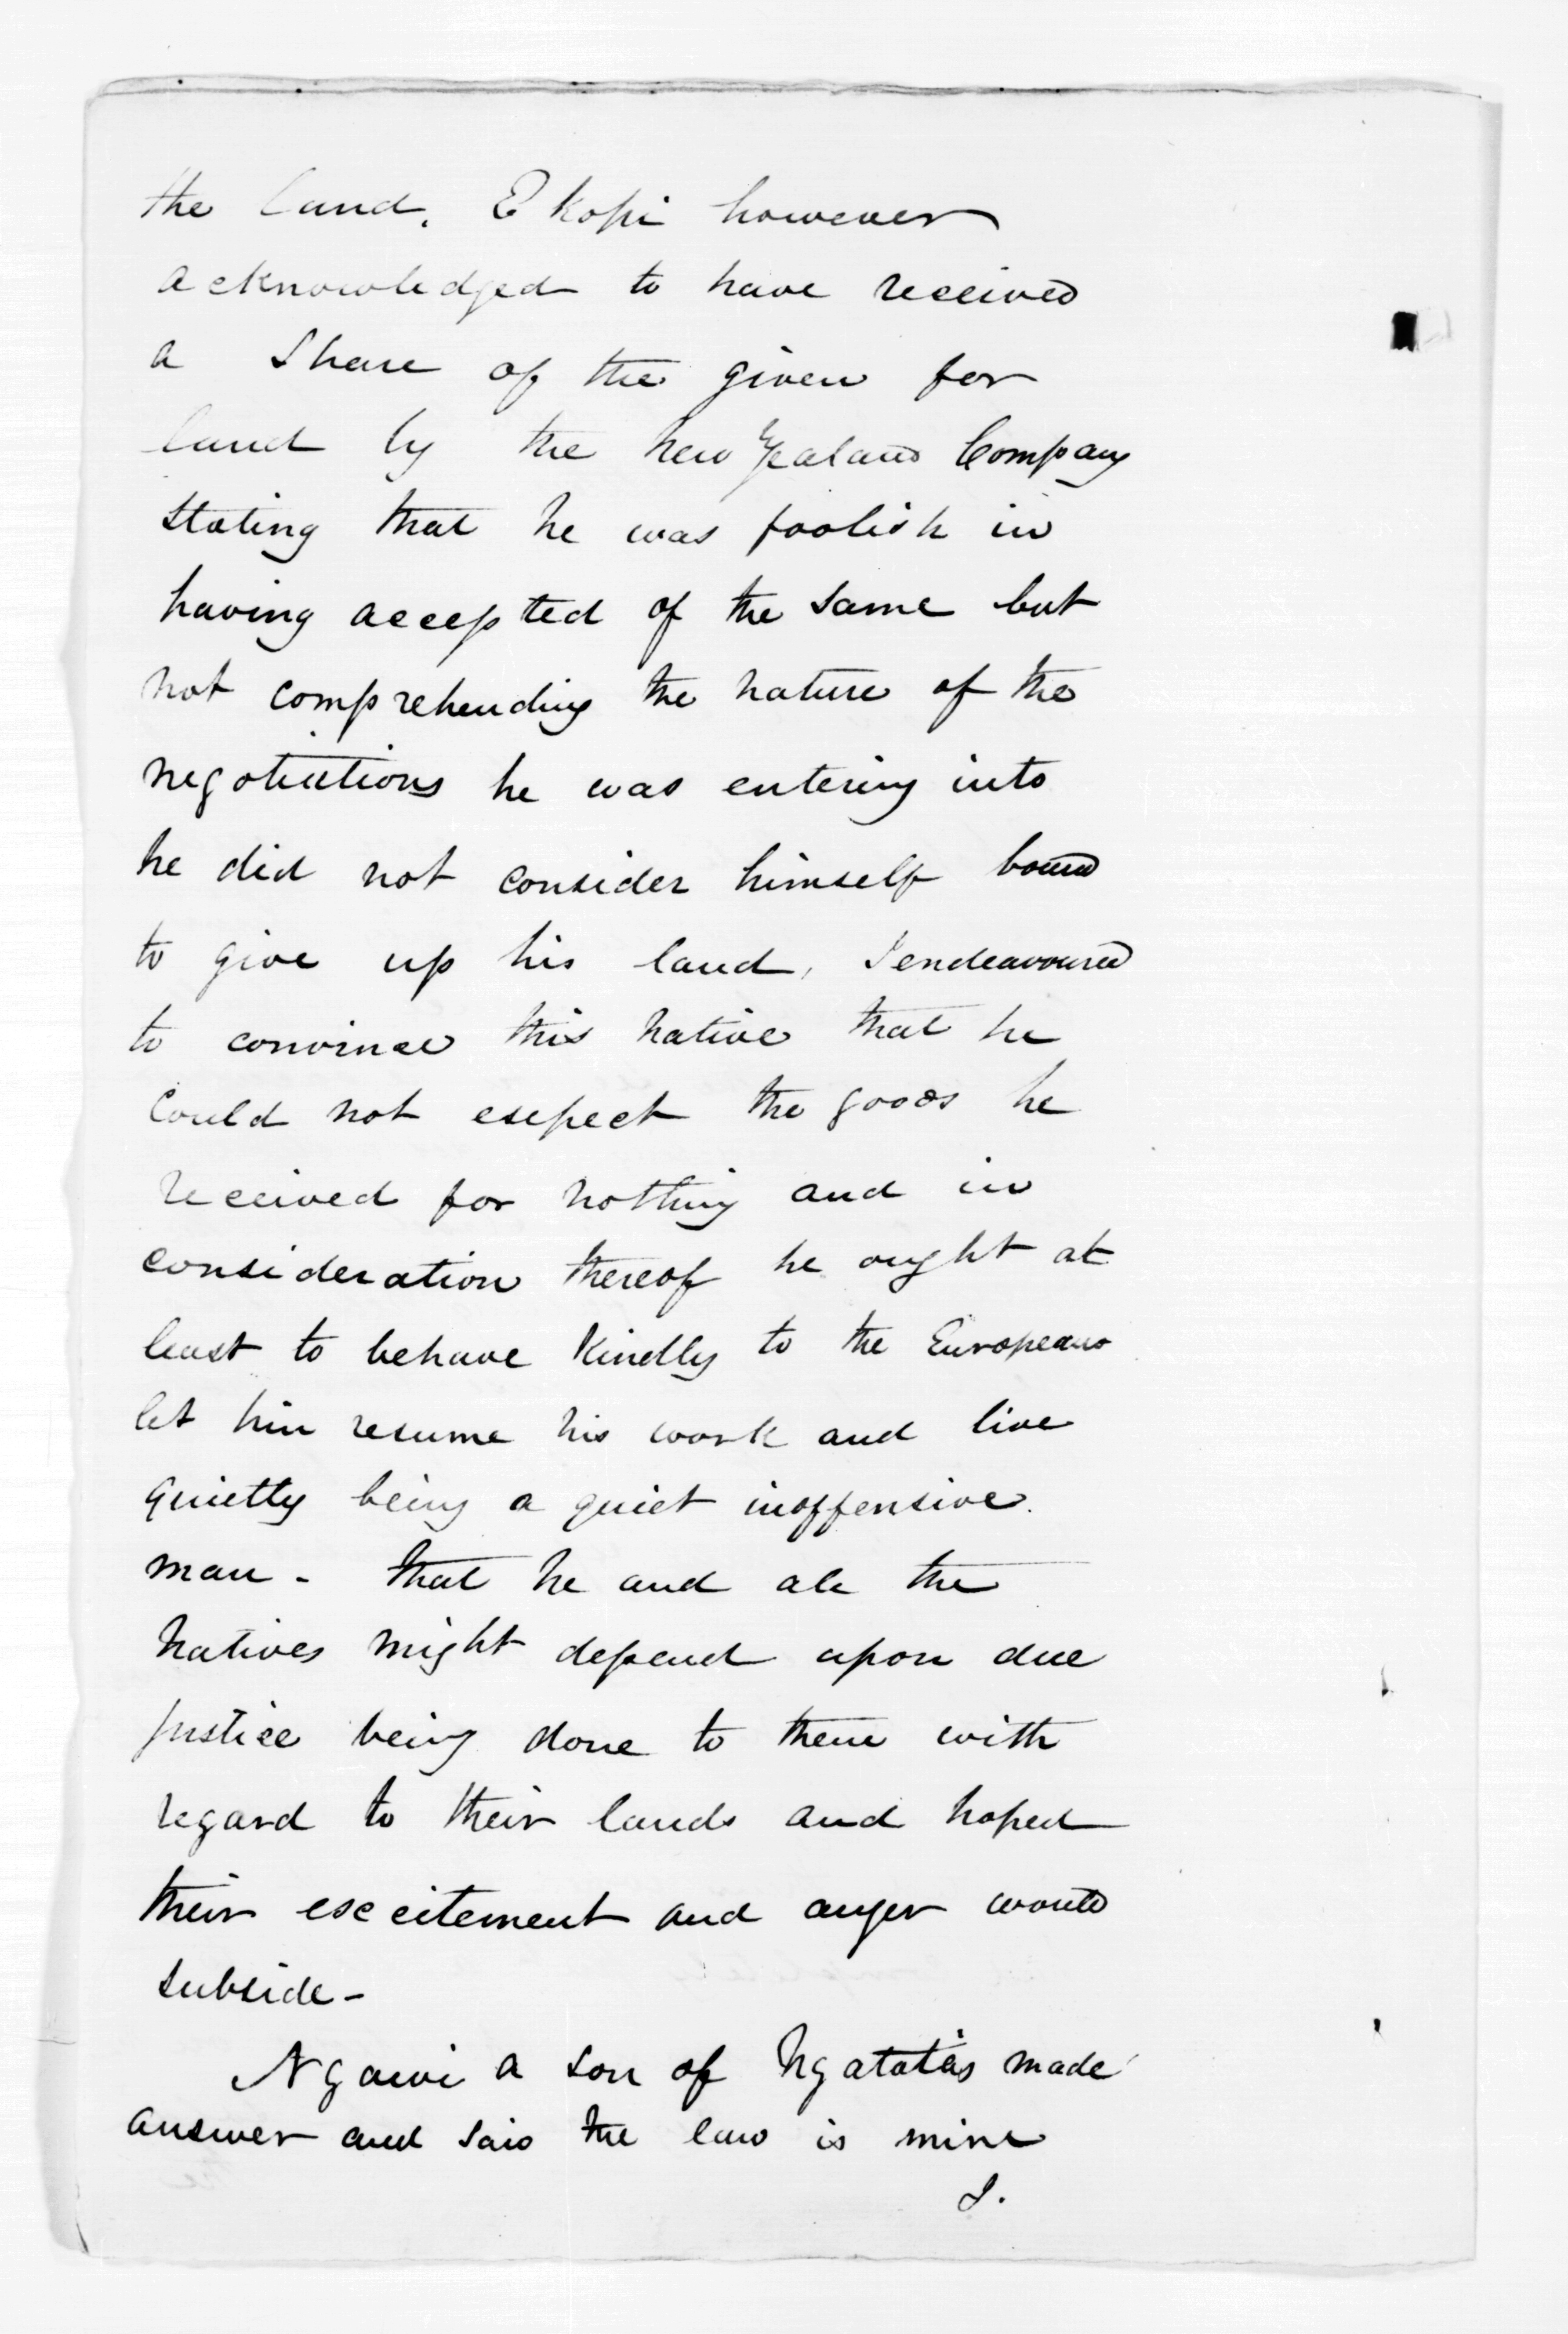 the land. E kopi however
acknowledged to have received
a Share of the given for
land by the New Zealand Company
stating that he was foolish in
having accepted of the same but
not comprehending the nature of the
negotiations he was entering into
he did not consider himself bound
to give up his land, I endeavoured
to convince this Native that he
could not expect the goods he
received for nothing and in
consideration thereof he ought at
least to behave kindly to the Europeans
let him resume his work and live
quietly being a quiet inoffensive
man - that he and all the
Natives might depend upon due
justice being done to them with
regard to their lands and hoped
their excitement and anger would
subside -
Ngawi a son of Ngatatas made
answer and said the law is mine
I.